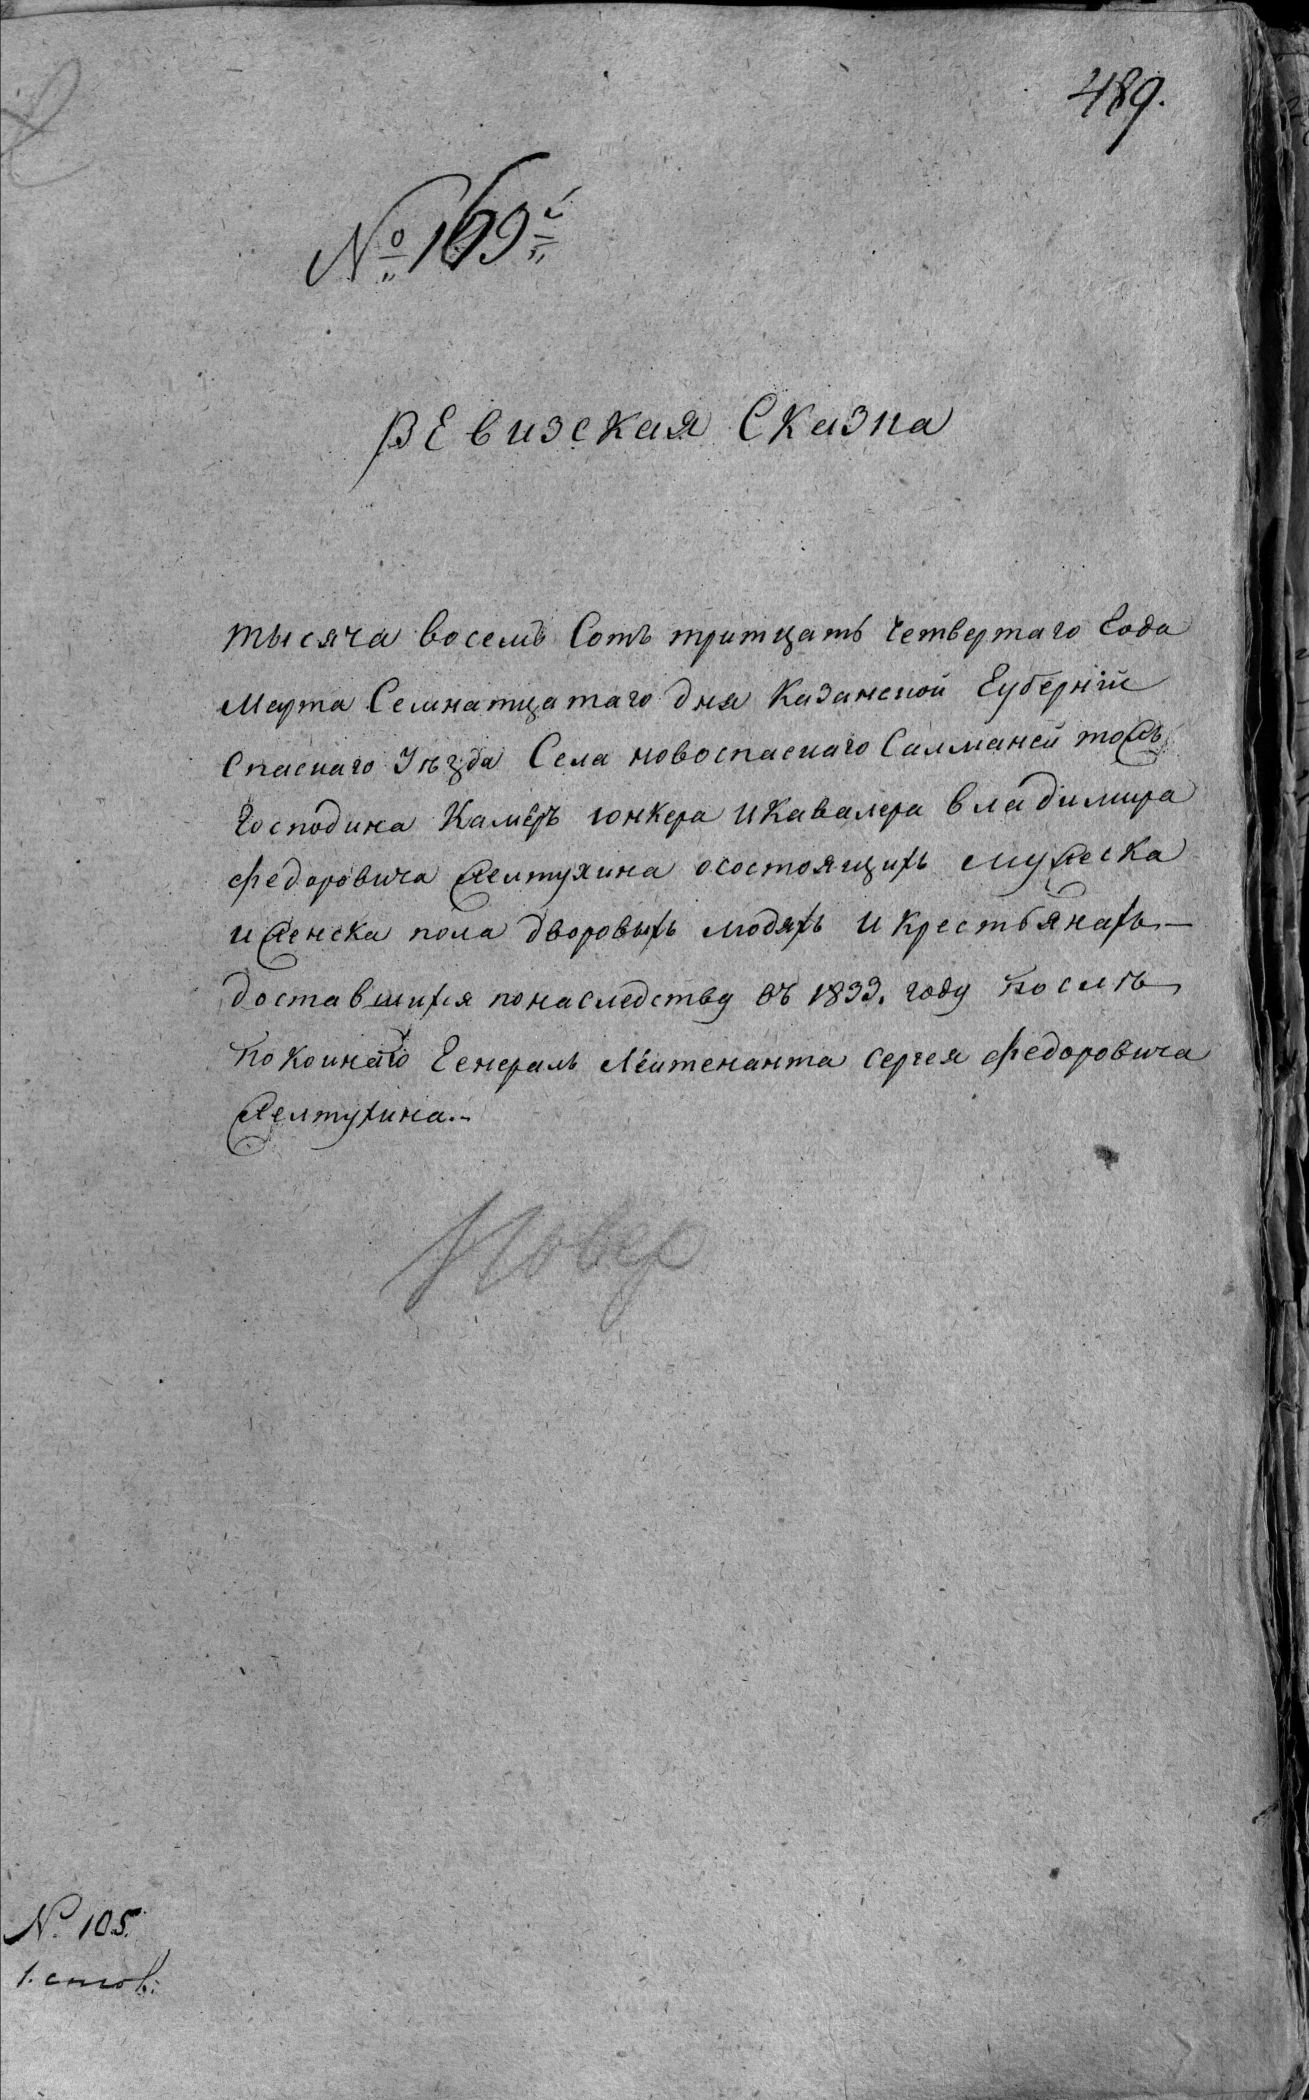 489.
№ 169й
Ревизская Сказка
тысяча восемь Сотъ тритцать четвертаго Года
Марта Семнатцатаго дня Казанской Губерніи
Спаскаго Уѣзда Села новоспаскаго Салманей тожъ
Господина Камеръ юнкера и Кавалера владимира
Федоровича Желтухина осостоящихъ мужеска
и женска пола дворовыхъ людяхъ и крестьянахъ—
доставшихся понаследству въ 1833. году послѣ
покоинаго Генералъ Леитенанта Сергея Федоровича
Желтухина.–
Повер
№ 105.
1. стов: